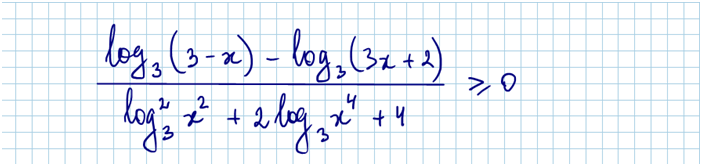 log₃(3-x) - log₃(3x+2)
log₃² x² + 2 log₃ x⁴ + 4
≥ 0